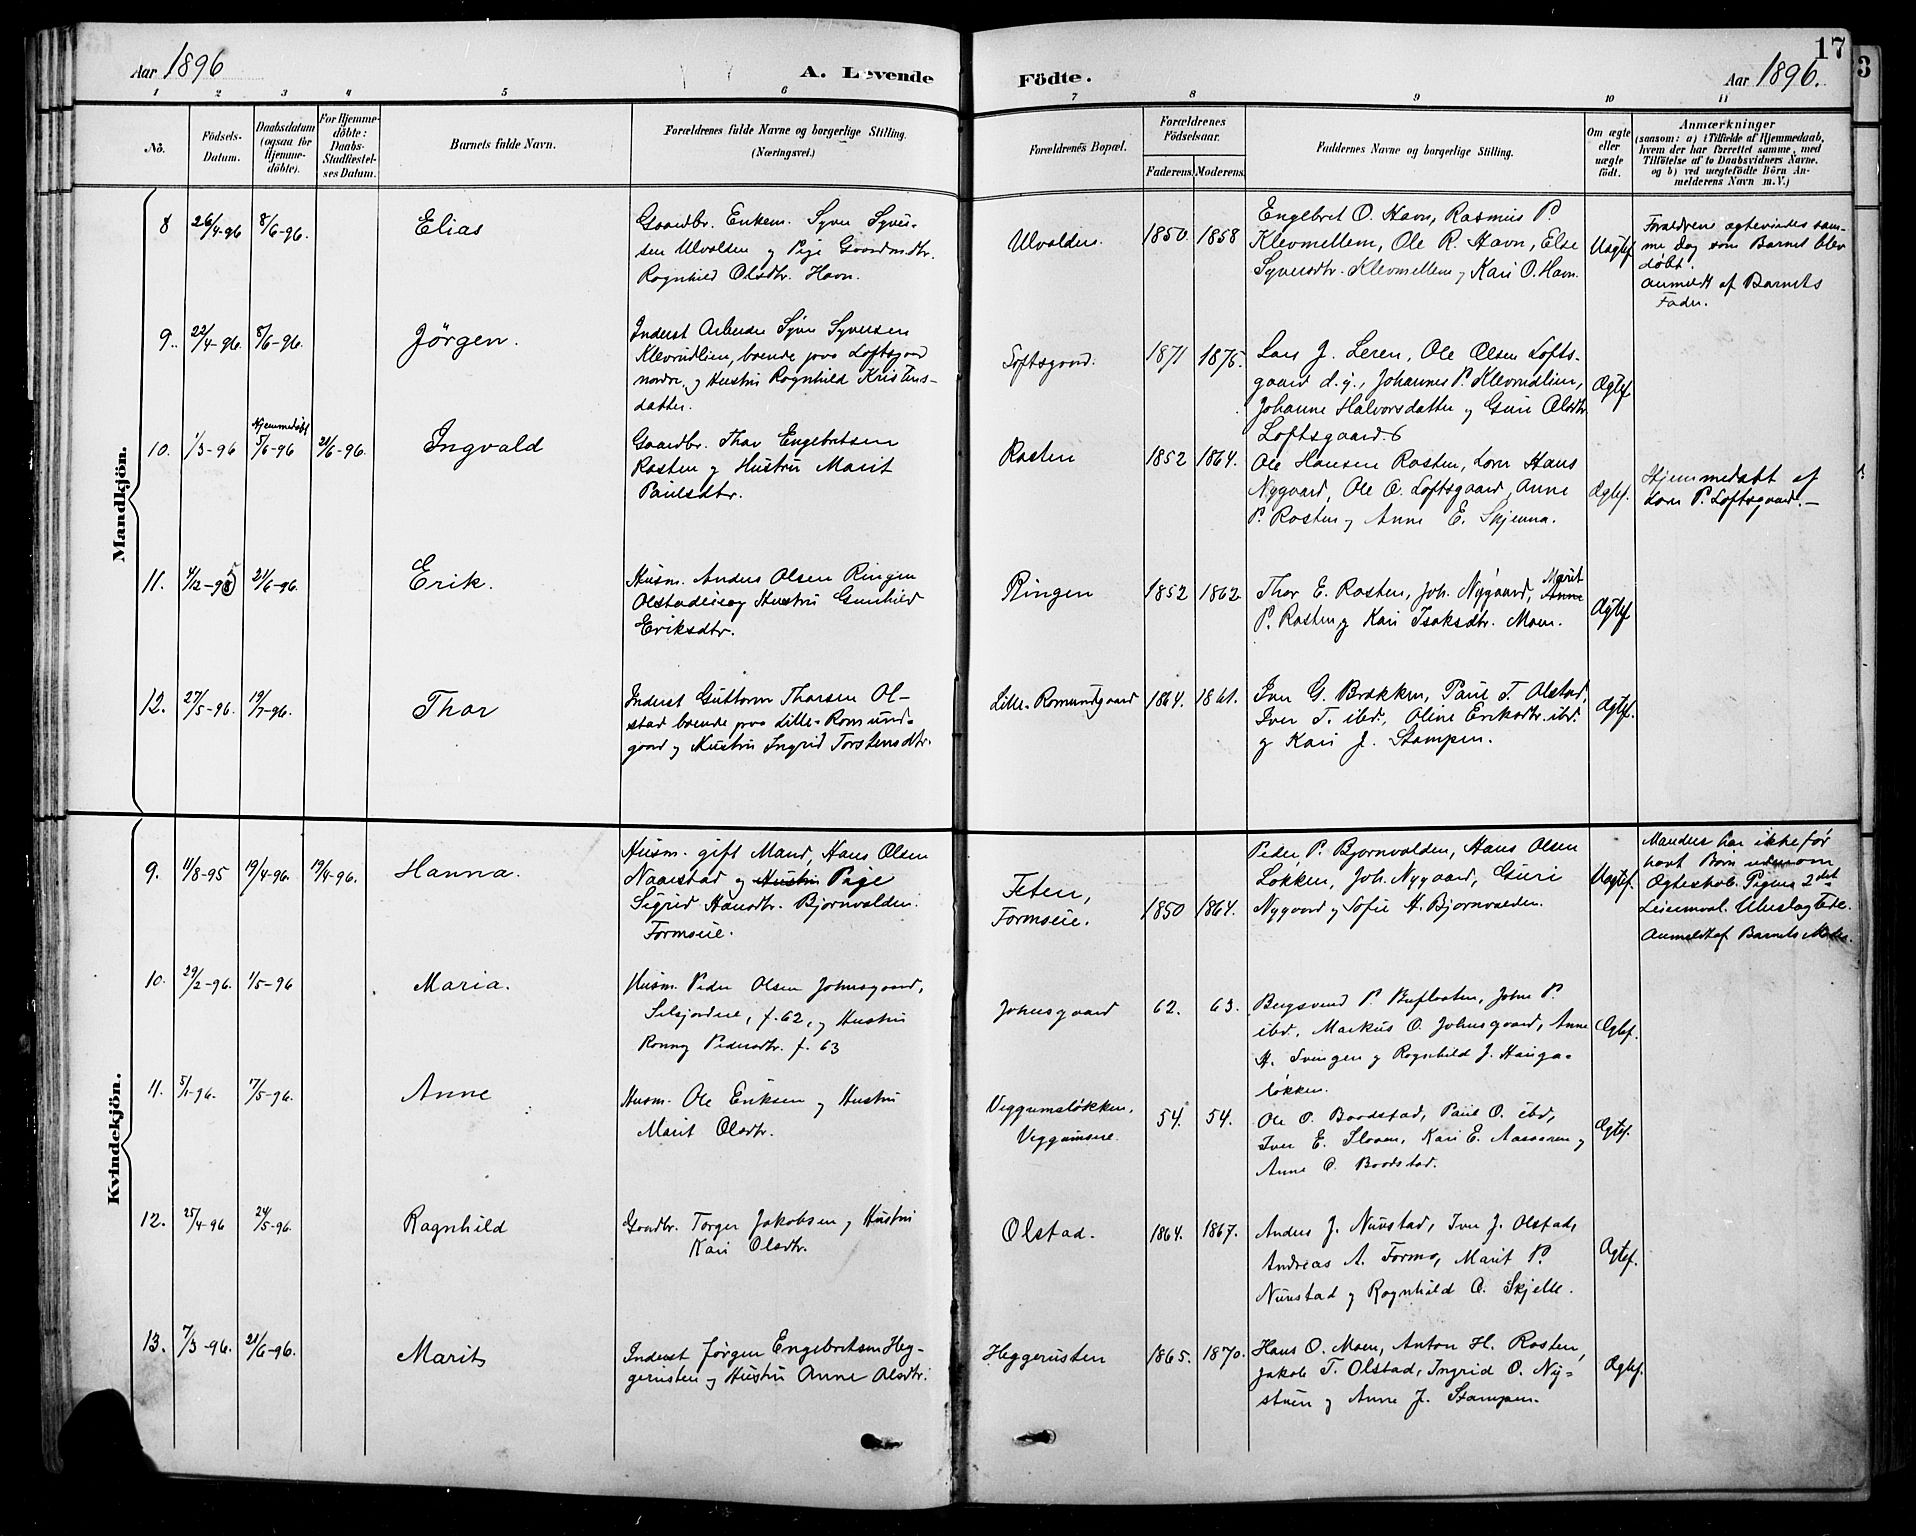 Aar 1896
A. Levende
Födte.
17
Aar 1896.
3
1 2 3 4 5 6 7 8 9 10 11
No.
Födsels-
Datum.
Daabsdatum
(ogsaa for
Hjemme-
döbte).
For Hjemme-
döbte:
Daabs-
Stadfæstel-
ses Datum.
Barnets fulde Navn.
Forældrenes fulde Navne og borgerlige Stilling.
(Næringsvei.)
Forældrenes Bopæl.
Forældrenes
Födselsaar.
Faderens. Moderens.
Faddernes Navne og borgerlige Stilling.
Om ægte
eller
uægte
födt.
Anmærkninger
(saasom: a) i Tilfælde af Hjemmedaab,
hvem der har forrettet samme, med
Tilföielse af to Daabsvidners Navne.
og b) ved uægtefödte Börn An-
melderens Navn m.V.)
Mandkjön.
8
26/4-96
8/6-96.
Elias
Gaardbr. Enkem. Syver Syver-
sen Ulvolden og Pige Gaardmdtr.
Rognhild Olsdtr. Havn.
Ulvolden.
1850. 1858
Engebret O. Havn, Rasmus P.
Klevmellem, Ole R. Havn, Else
Syversdtr. Klevmellem og Kari O. Havn.
Uægtef.
Forældrene ægteviedes sam-
me Dag som Barnet blev
døbt.
anmeldt af Barnets
Fader.
9.
22/4-96.
8/6-96.
Jörgen.
Inderst Arbeider Syver Syversen
Klevrudlien, boende paa Loftsgaard
nordre, og Hustru Rognhild Kristens-
datter.
Loftsgaard.
1871 1875.
Lars J. Leren, Ole Olsen Lofts-
gaard d.y., Johannes P. Klevrudlien,
Johanne Halvorsdatter og Guri Olsdtr.
Loftsgaard.
Ægtef.
10.
1/3-96
Hjemmedøbt
5/6-96
21/6-96.
Ingvald
Gaardbr. Thor Engebretsen
Rosten og Hustru Marit
Paulsdtr.
Rosten
1852 1864.
Ole Hansen Rosten, Lars Hans
Nygaard, Ole O. Loftsgaard, Anne
P. Rosten og Anne E. Skjenna.
Ægtef.
Hjemmedøbt af
Lars P. Loftsgaard.-
11.
4/12-95
21/6-96.
Erik.
Husm. Anders Olsen Ringen
Olstadeie og Hustru Gunhild
Eriksdtr.
Ringen
1852 1862
Marit
Thor E. Rosten, Joh. Nygaard, Anne
P. Rosten og Kari Isaksdtr. Moen.
Ægtef
12.
27/5-96.
19/7-96.
Thor
Inderst Guttorm Thorsen Ol-
stad boende paa Lille-Romund-
gaard og Hustru Ingrid Torstensdtr.
Lille-Romundgaard
1864. 1861.
Iver G. Brækken, Paul T. Olstad,
Iver T. ibd., Oline Eriksdtr. ibd.
og Kari J. Stampen.
Ægtef.
Kvindekjön.
9.
11/8-95
19/4-96.
19/4-96.
Hanna.
Husm. gift Mand, Hans Olsen
Naarstad og Hustru Pige
Sigrid Hansdtr. Bjornvolden.
Formoeie.
Teten,
Formoeie.
1850 1864.
Peder P. Bjornvolden, Hans Olsen
Løkken, Joh. Nygaard, Guri
Nygaard og Sofie H. Bjornvolden.
Uægtef.
Manden har ikke før
havt Børn udenom
Ægteskab. Pigens 2det
Leiermaal.
Anmeldt af Barnets Moder.
10.
29/2-96.
1/5-96
Maria.
Husm. Peder Olsen Johnsgaard,
Selsjordeie, f. 62, og Hustru
Ronnog Pedersdtr. f. 63
Johnsgaard
62. 63.
Bergsvend P. Buflooten, John P.
ibd., Markus O. Johnsgaard, Anne
H. Svingen og Rognhild J. Hauga-
løkken.
Ægtef.
11.
5/1-96.
7/5-96.
Anne
Husm. Ole Eriksen og Hustru
Marit Olsdtr.
Veggumsløkken,
Veggumseie.
54. 54.
Ole O. Bordstad, Paul O. ibd,
Iver E. Sloen, Kari E. Aasaaren og
Anne O. Bordstad.
Ægtef.
12.
25/4-96
24/5-96.
Ragnhild
Gaardbr. Torger Jakobsen og Hustru
Kari Olsdtr.
Olstad.
1864. 1867.
Anders J. Nurstad, Iver J. Olstad,
Andreas A. Formo, Marit P.
Nurstad og Rognhild O. Skjelle.
Ægtef.
13.
7/3-96.
21/6-96.
Marit
Inderst Jørgen Engebretsen Heg-
gerusten og Hustru Anne Olsdtr.
Heggerusten
1865. 1870.
Hans O. Moen, Anton H. Rosten,
Jakob T. Olstad, Ingrid O. Ny-
stuen og Anne J. Stampen.
Ægtef.